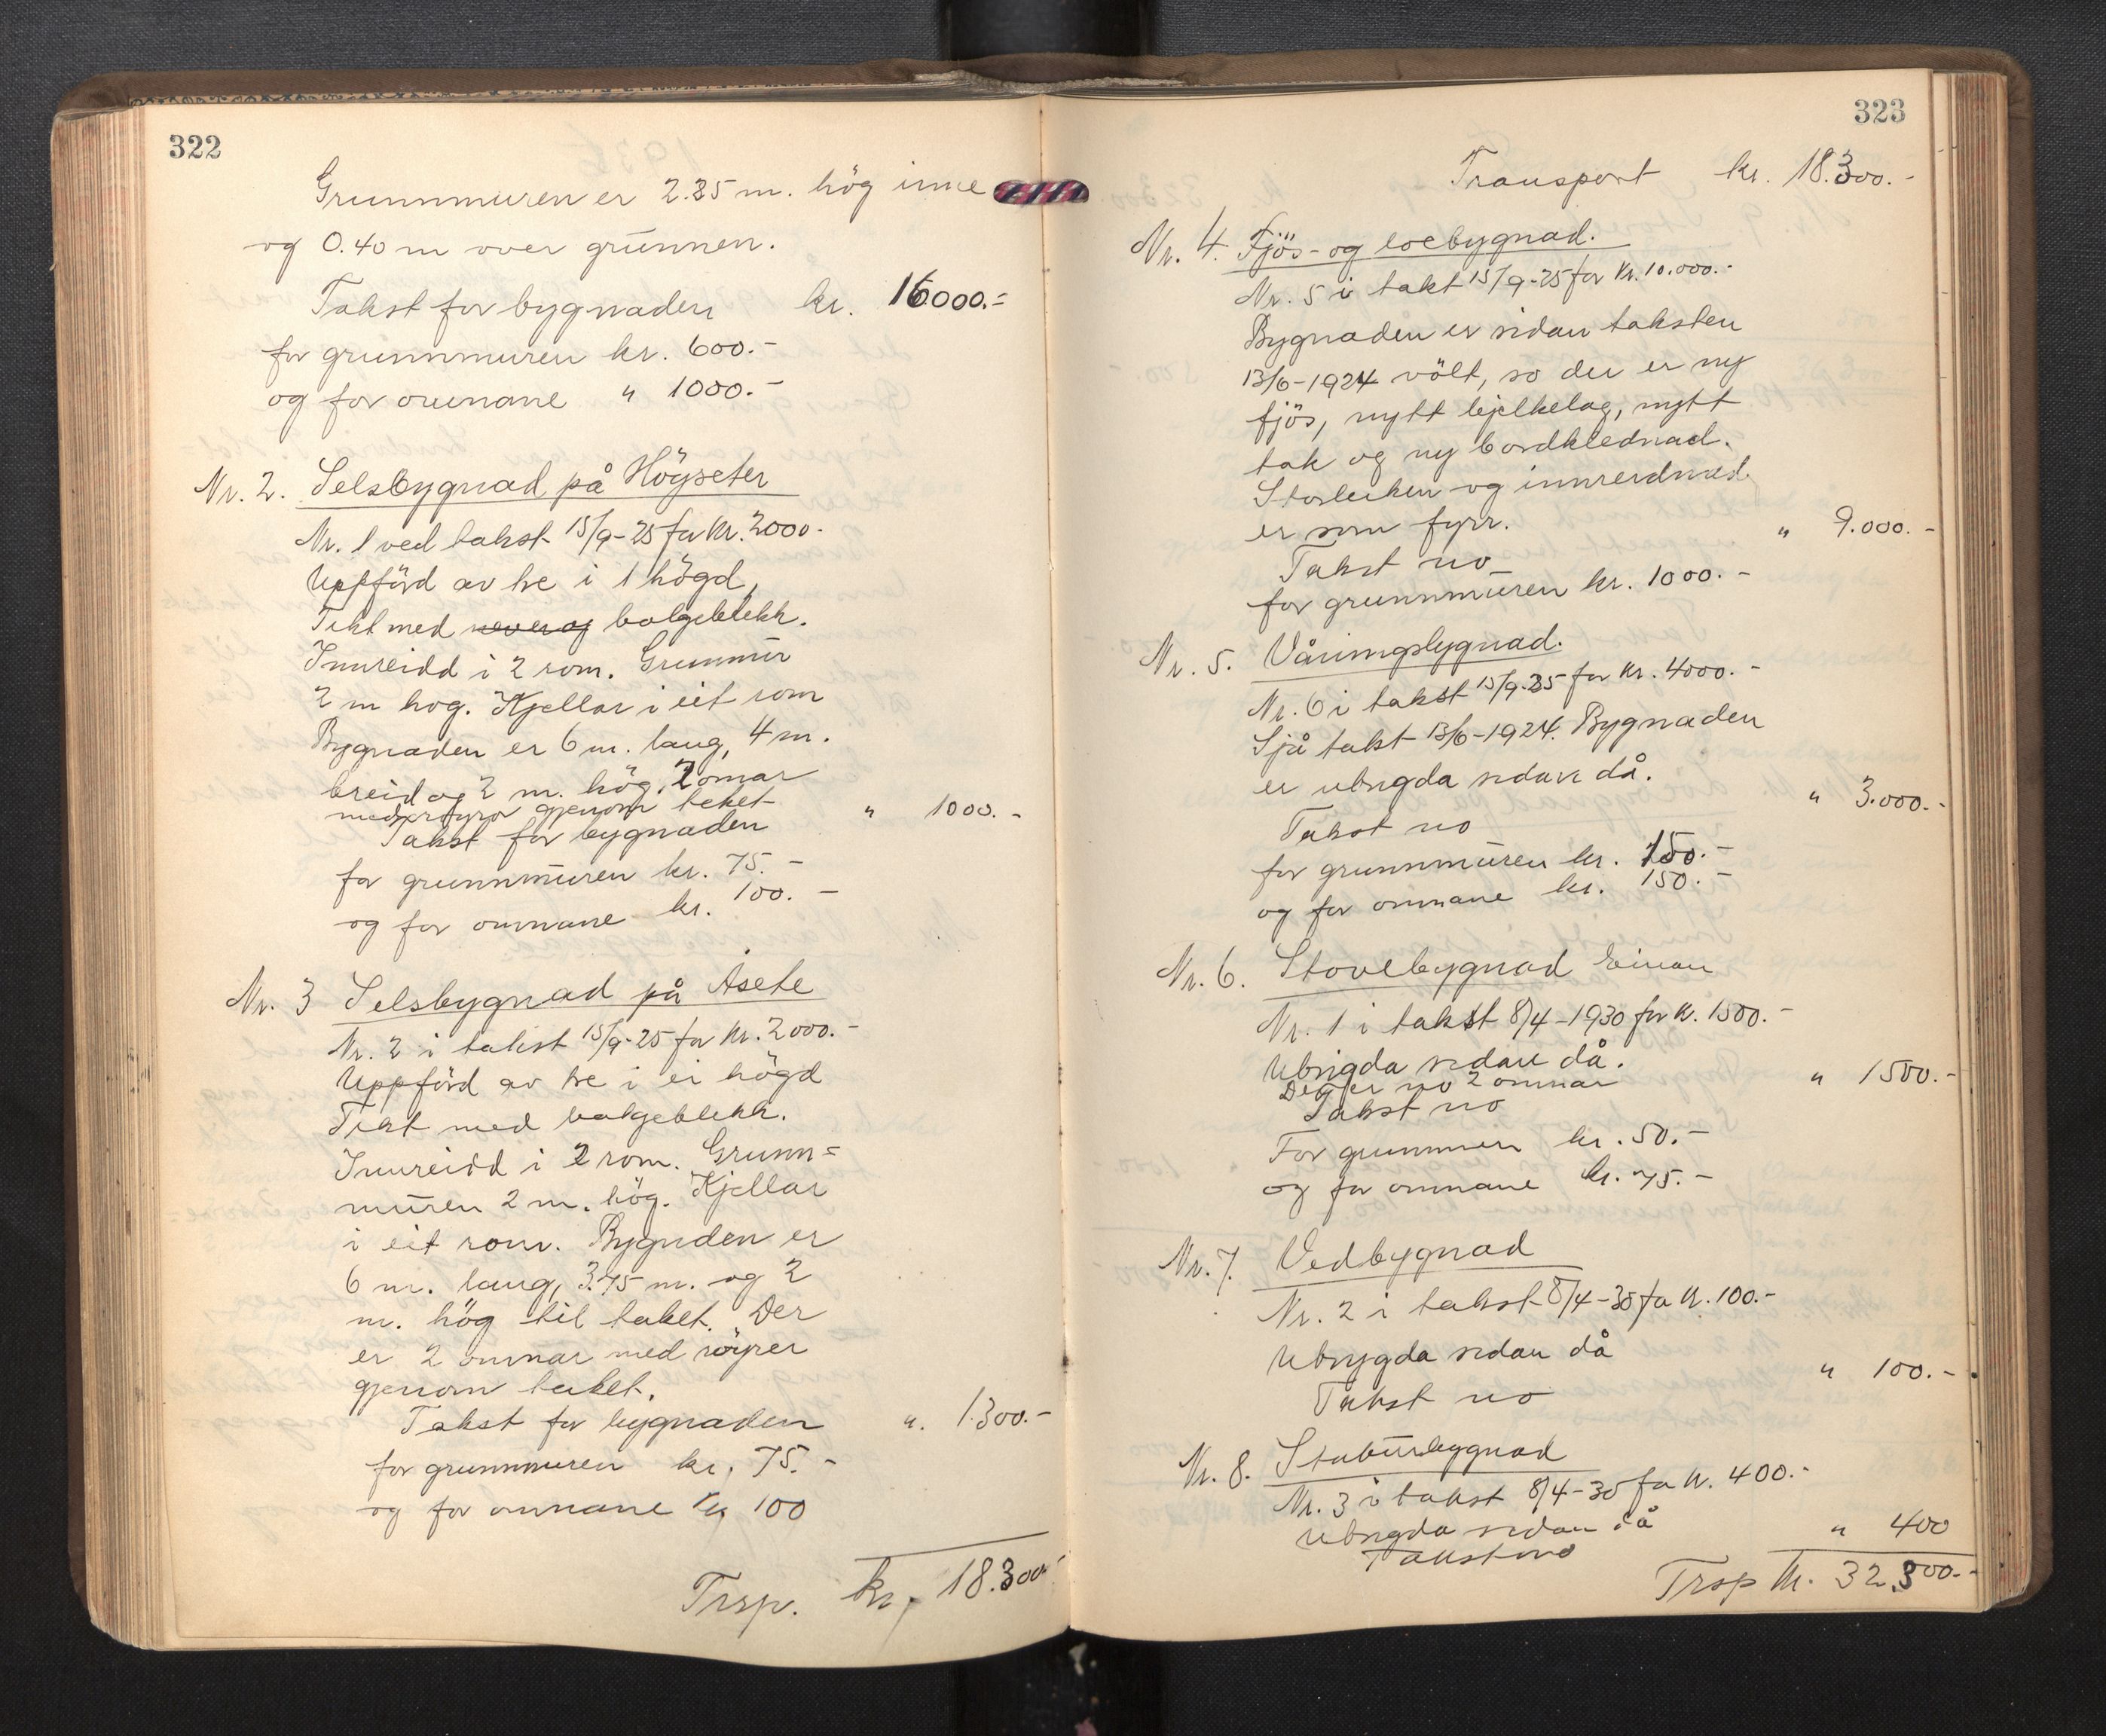 322
Grunnmuren er 2.25 m. hög inne
og 0.40 m over grunnen.
Takst for bygnaden kr. 16000.-
for grunnmuren kr. 600.-
og for omnane " 1000.-
Nr. 2. Selsbygnad på Högseter
Nr. 1 ved takst 15/9-25 for kr. 2000.-
Uppförd av tre i 1 högd,
Tekt med never og bolgeblekk.
Innreidd i 2 rom. Grunnmur
2 m hog. Kjellar i eit rom
Bygnaden er 6 m. lang, 4 m.
breid og 2 m. hög. 2 omnar
med gjenom taket
Takst for bygnaden " 1000.-
for grunnmuren kr. 75.-
og for omnane kr. 100.-
Nr. 3 Selsbygnad på Åsete
Nr. 2 i takst 15/9-25 for kr. 2000.-
Uppförd av tre i ei högd
Tekt med bolgeblekk.
Innreidd i 2 rom. Grunn=
muren 2 m. hög. Kjellar
i eit rom. Bygnden er
6 m. lang, 3.75 m. og 2
m. hög til taket. Der
er 2 omnar med röyrer
gjenom taket.
Takst for bygnaden ". 1.300.-
for grunnmuren kr. 75.-
og for omnane kr 100
Trsp. kr. 18.300.-
323
Transport kr. 18.300.-
Nr. 4. Fjös- og loebygnad.
Nr. 5 i takt 15/9-25 for kr. 10.000.-
Bygnaden er sidan taksten
13/6-1924 völt, so der er ny
fjös, nytt bjelkelag, nytt
tak og ny bordklednad.
Storleiken og innreidnad
er som fyrr.
Takst no " 9.000.-
for grunnmuren kr. 1000.-
Nr. 5. Våningsbygnad.
Nr. 6 i takst 15/9-25 for kr. 4000.-
Sjå takst 13/6-1924. Bygnaden
er ubrigda sidan då.
Takst no " 3.000.-
for grunnmuren kr. 150.-
og for omnane kr. 150.-
Nr. 6. Stovebygnad Einan
Nr. 1 i takst 8/4-1930 for kr. 1500.-
Ubrigda sidan då.
Det er no 2 omnar
Takst no " 1500.-
For grunnmuren kr. 50.-
og for omnane kr. 75.-
Nr. 7. Vedbygnad
Nr. 2 i takst 8/4-30 for kr. 100.-
Ubrygda sidan då
Takst no " 100.-
Nr. 8. Stabursbygnad
Nr. 3 i takst 8/4-30 for kr. 400.-
Ubrigda sidan då
Takst no " 400
Trsp kr. 32.300.-